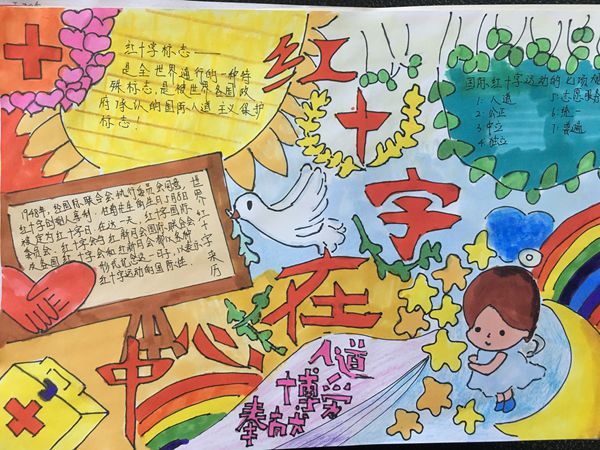 红十字标志——
是全世界通行的一种特
殊标志,是被世界各国政
府承认的国际人道主义保护
标志!
红
十
字
在
心
中
国际红十字运动的七项
1.人道 5.志愿服务
2.公正 6.统一
3.中立 7.普遍
4.独立
世界红十字来历
1948年,经国际联合会执行委员会同意,
红十字创始人亨利·杜南先生的生日5月8日
被定为红十字日。在这一天,红十字国际
委员会、红十字会与红新月会国际联合会
及各国红十字会和红新月会都以各种
形式纪念这一日子,以表示
红十字运动的国际性.
人道
博爱
奉献